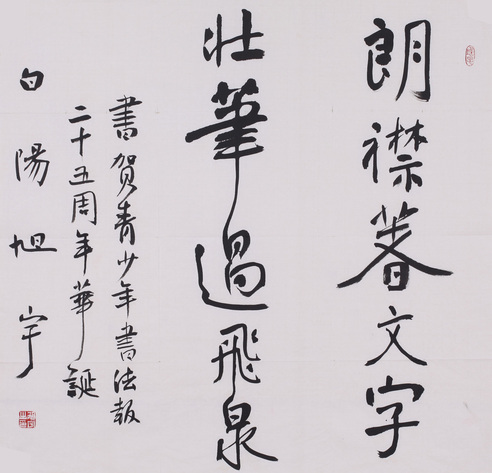 朗襟文字
壯筆過飛泉
書賀青少年書法報
二十五周年華誕
白陽旭宇